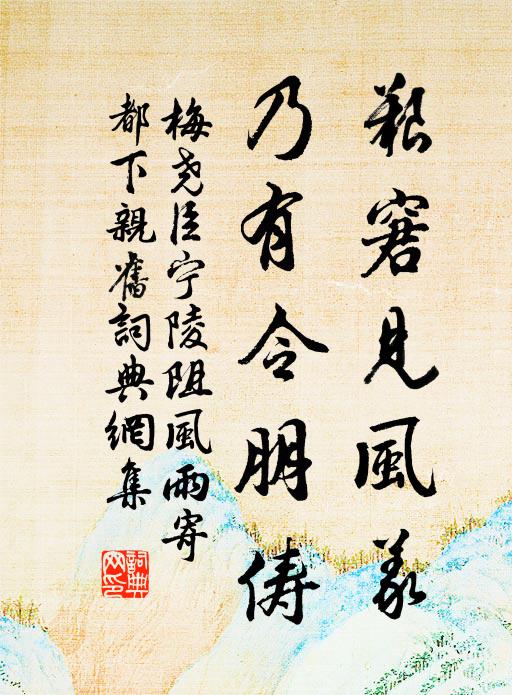 艱窘見風義
乃有令朋儔
梅尧臣宁陵阻風雨寄
都下親舊詞典網集
詞典
网印